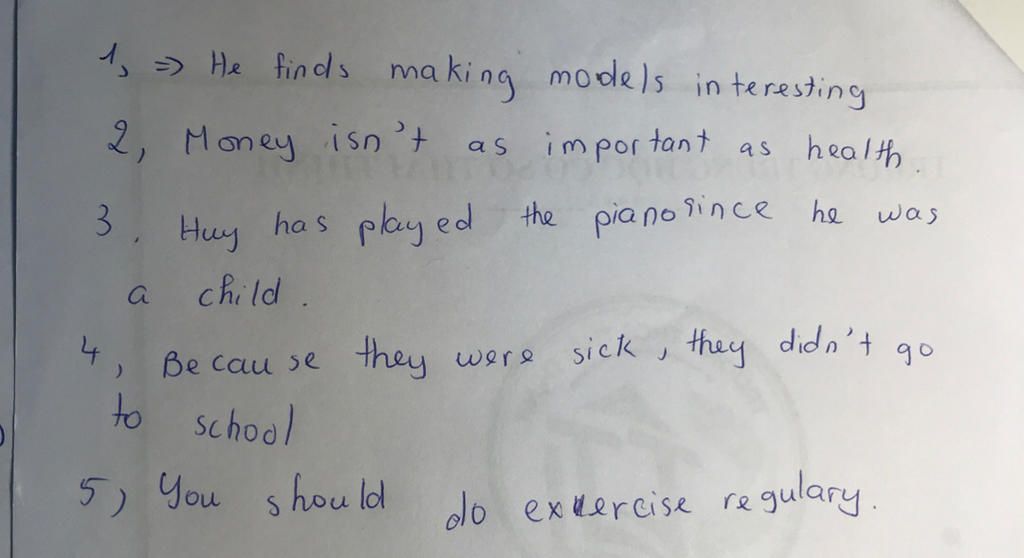 1, => He finds making models interesting
2, Money isn't as important as health.
3. Huy has played the piano since he was
a child.
4, Because they were sick, they didn't go
to school
5, You should do exercise regulary.